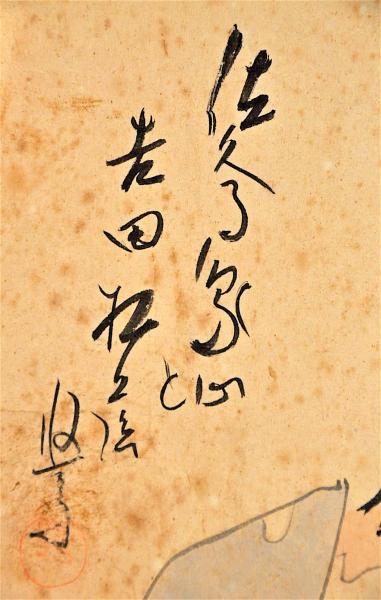 佐久間象山
と
吉田松陰